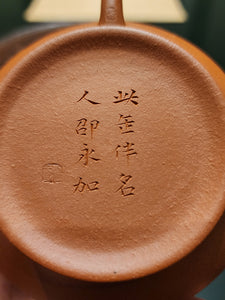 此缶伴名
人邵永加